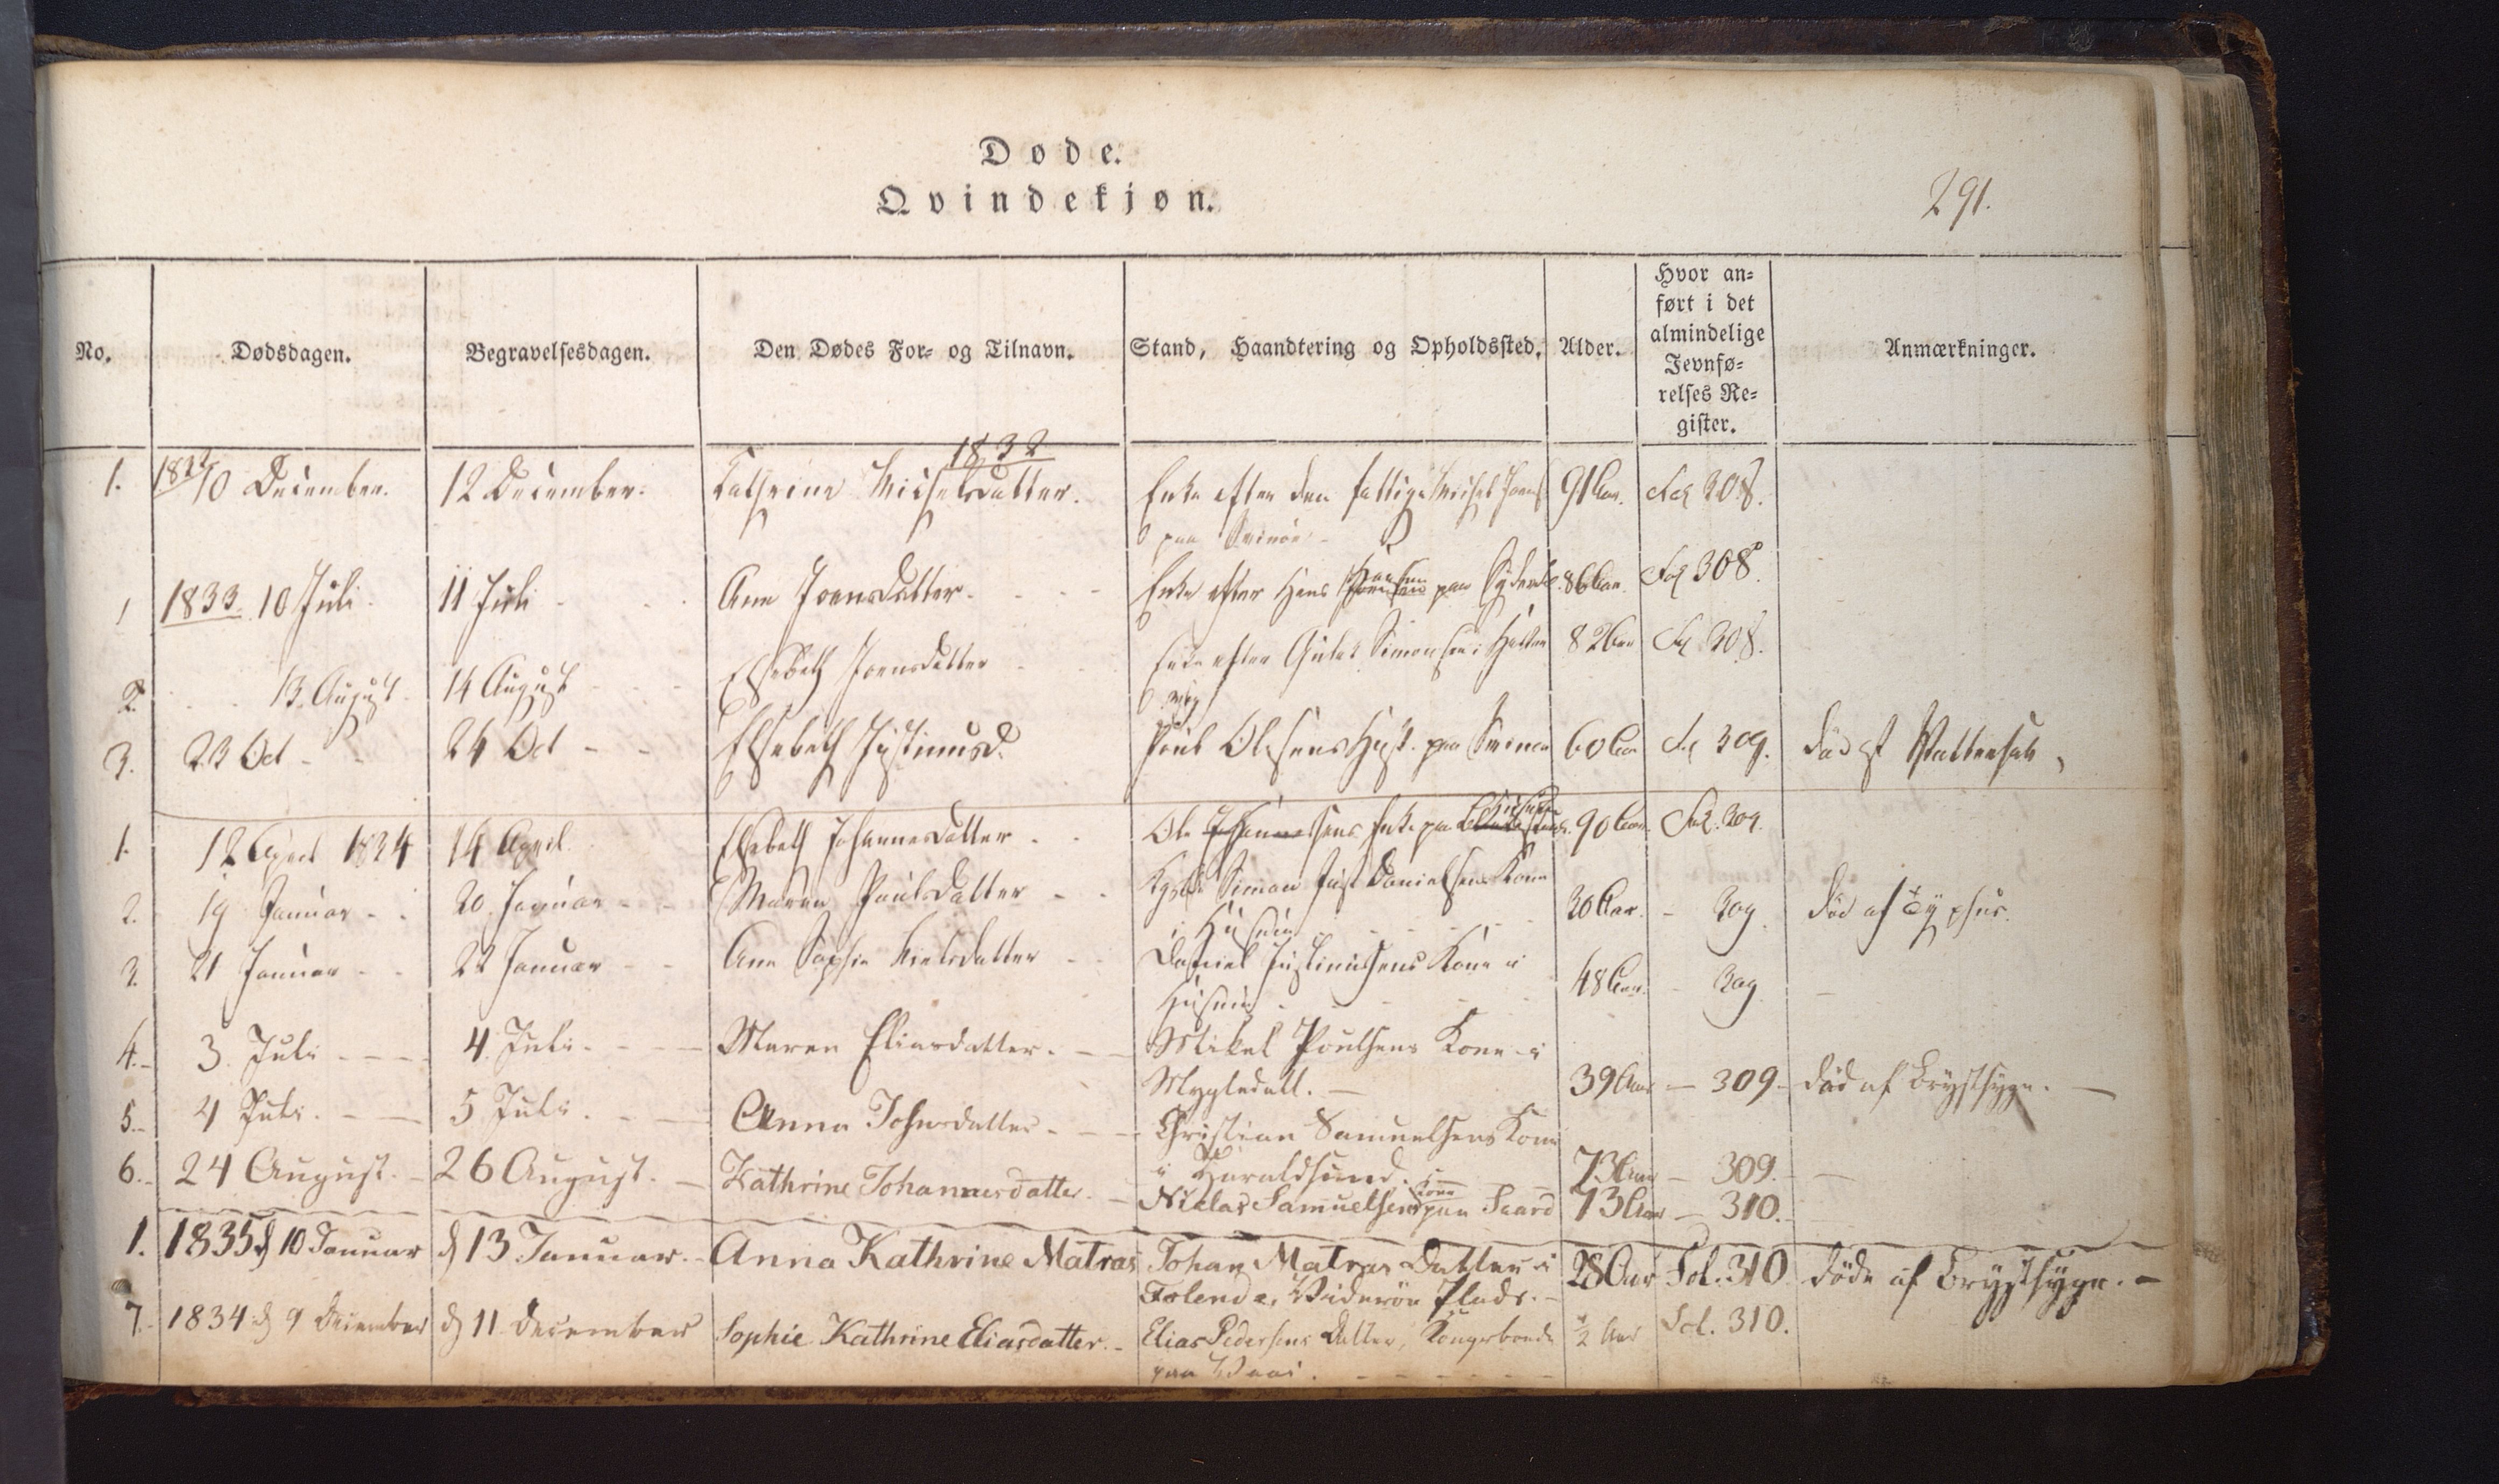 Døde.
Qvindekjøn.
291.
No. Dødsdagen. Begravelsesdagen. Den Dødes For- og Tilnavn. Stand, Haandtering og Opholdssted. Alder. Hvor an-
ført i det
almindelige
Jevnfø-
relses Re-
gister. Anmærkninger.
1832
1. 10 December. 12 December. Cathrine Michelsdatter. Enke efter den fattige Michel 91 Aar. Fol 308.
paa Svinøe
1 1833. 10 Juli 11 Juli Ane Joensdatter. Enke efter Hans paa 86 Aar. Fol 308.
2. 13. August. 14 August Elsebeth Joensdatter Enke efter Gutte Simonsen i 82 Aar Fol 308.
vig
3. 23 Oct 24 Oct Elsebeth Justinusd. Poul Olesens Hust. paa Svinøe 60 Aar Fol 309. død af
1. 12 April 1834 14 April. Elsebeth Johannesdatter. Ole Johannesens Enke paa 90 Aar. Fol. 309.
2. 19 Januar 20 Januar Maren Poulsdatter Simon Danielsens Kone
i Husum 30 Aar. - 309. død af Typhus.
3. 21 Januar 22 Januar Ane Sophie Nielsdatter Daniel Justinussens Kone i
Husum 48 Aar. - 309
4. 3. Juli 4. Juli. Maren Eliasdatter. Mikel Poulsens Kone i
Mygledall. 39 Aar - 309. død af Brystsyge.
5. 4 Juli. 5 Juli. Anna Johnsdatter. Christian Samuelsens Kone
i Haraldsund. 73 Aar - 309.
6. 24 August. 26 August. Kathrine Johannesdatter. Niclas Samuelsens Kone paa Gaard 73 Aar - 310.
1. 1835 d 10 Januar d 13 Januar. Anna Kathrine Matras Johan Matras Datter i 28 Aar Fol. 310 døde af Brystsyge.
Viderøe Plads.
7. 1834 d 9 December d 11 December Sophie Kathrine Eliasdatter. Elias Pedersens Datter, Kongsbonde ½ Aar Fol. 310.
paa Waai.